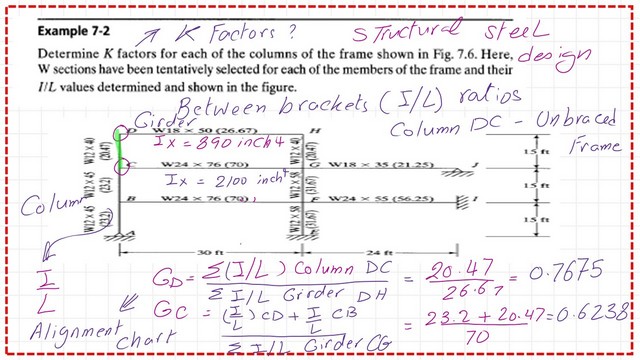 Example 7-2
K Factors ?
Structural steel
design
Determine K factors for each of the columns of the frame shown in Fig. 7.6. Here,
W sections have been tentatively selected for each of the members of the frame and their
I/L values determined and shown in the figure.
Between brackets (I/L) ratios
Girder
Column DC - Unbraced
Frame
D
W18 × 50 (26.67)
H
Ix = 890 inch4
W12 × 40
(20.47)
W12 × 40
(20.47)
15 ft
C
W24 × 76 (70)
G
W18 × 35 (21.25)
J
Ix = 2100 inch4
W12 × 45
(23.2)
W12 × 58
(31.67)
15 ft
B
W24 × 76 (70)
F
W24 × 55 (56.25)
I
Column
W12 × 45
(23.2)
W12 × 58
(31.67)
15 ft
A
E
30 ft
24 ft
I
L
Alignment
chart
GD = Σ(I/L) Column DC
Σ I/L Girder DH
= 20.47
26.67
= 0.7675
GC = (I/L) CD + I/L CB
Σ I/L Girder CG
= 23.2 + 20.47
70
= 0.6238